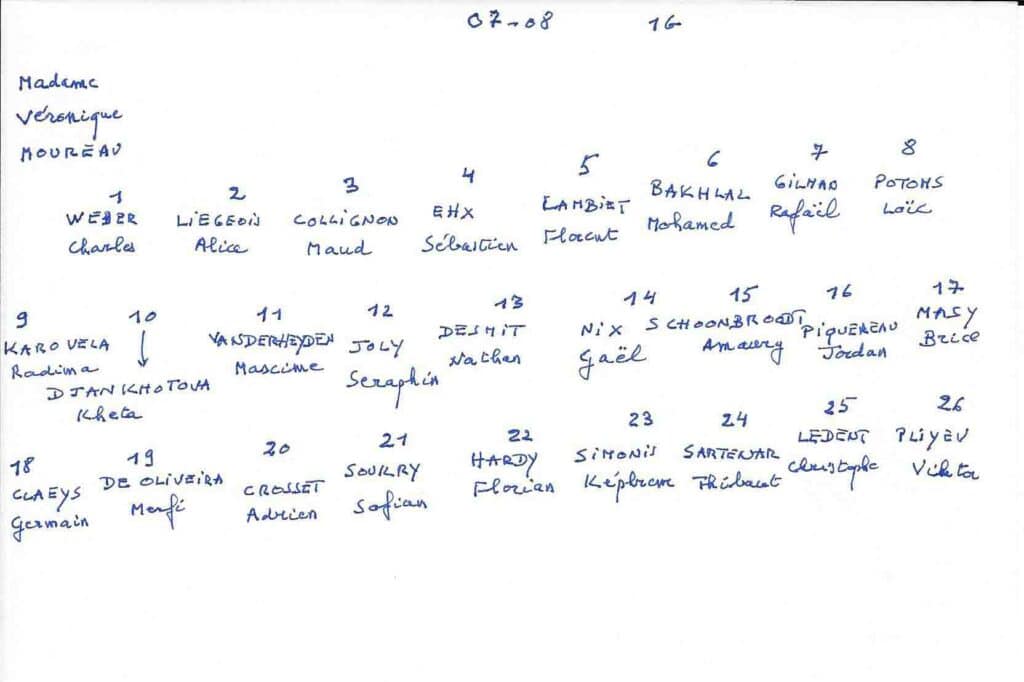 07-08 16
Madame
Véronique
MOUREAU
1 2 3 4 5 6 7 8
WEBER LIEGEOIS COLLIGNON EHX LAMBIET BAKHLAL GILMAN POTOMS
Charles Alice Maud Sébastien Florent Mohamed Rafaël Loïc
9 10 11 12 13 14 15 16 17
KAROVELA VANDERHEYDEN JOLY DESMIT NIX SCHOONBROODT PIQUEREAU MASY
Radima Maxime Seraphin Nathan Gaël Amaury Jordan Brice
DJANKHOTOVA
Kheta
18 19 20 21 22 23 24 25 26
CLAEYS DE OLIVEIRA CROSSET SOUKRY HARDY SIMONIS SARTENAR LEDENT PLIYEV
Germain Adrien Sofian Florian Képhrem Thibaut Christophe Vikta